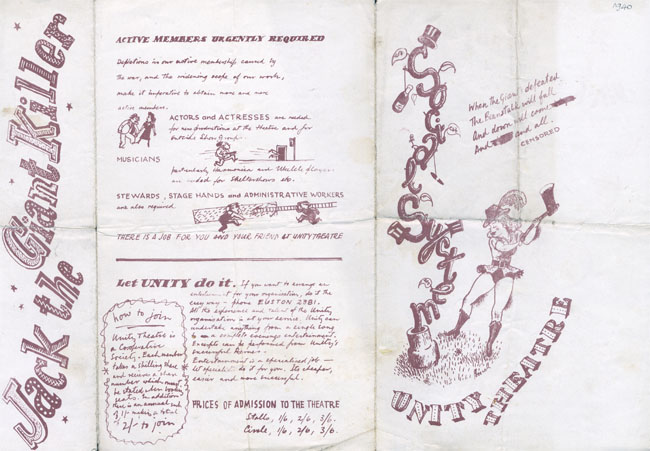 Jack the Giant Killer
ACTIVE MEMBERS URGENTLY REQUIRED
Depletions in our active membership caused by
the war, and the widening scope of our work,
make it imperative to obtain more and more
active members.
ACTORS and ACTRESSES are needed
for new productions at the theatre and for
Outside Show Group.
MUSICIANS
particularly and Ukulele players
are needed for Sheltershows etc.
STEWARDS, STAGE HANDS and ADMINISTRATIVE WORKERS
are also required.
THERE IS A JOB FOR YOU and YOUR FRIEND at UNITY THEATRE
Let UNITY do it. If you want to arrange an
entertainment for your organisation, do it the
easy way - phone EUSTON 2381.
All the experience and talent of the Unity
organisation is at your service. Unity can
undertake anything from a single song
to a complete evenings entertainment.
Excerpts can be performed from Unity's
successful Revues.
Entertainment is a specialised job -
let specialists do it for you. Its cheaper,
easier and more successful.
how to join
Unity Theatre is
a Cooperative
Society. Each member
takes a shilling share
and receives a share
number which must
be stated when booking
seats. In addition
there is an annual sub
1/- making a total
2/- to join
PRICES OF ADMISSION TO THE THEATRE
Stalls, 1/6, 2/6, 3/6.
Circle, 1/6, 2/6, 3/6.
1940
Social System
When the Giant's defeated
The Beanstalk will fall
And down will come
And and all.
CENSORED
UNITY THEATRE